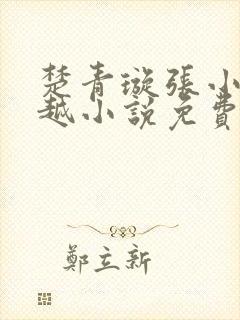 楚青璇張小
越小說免費
鄭立新